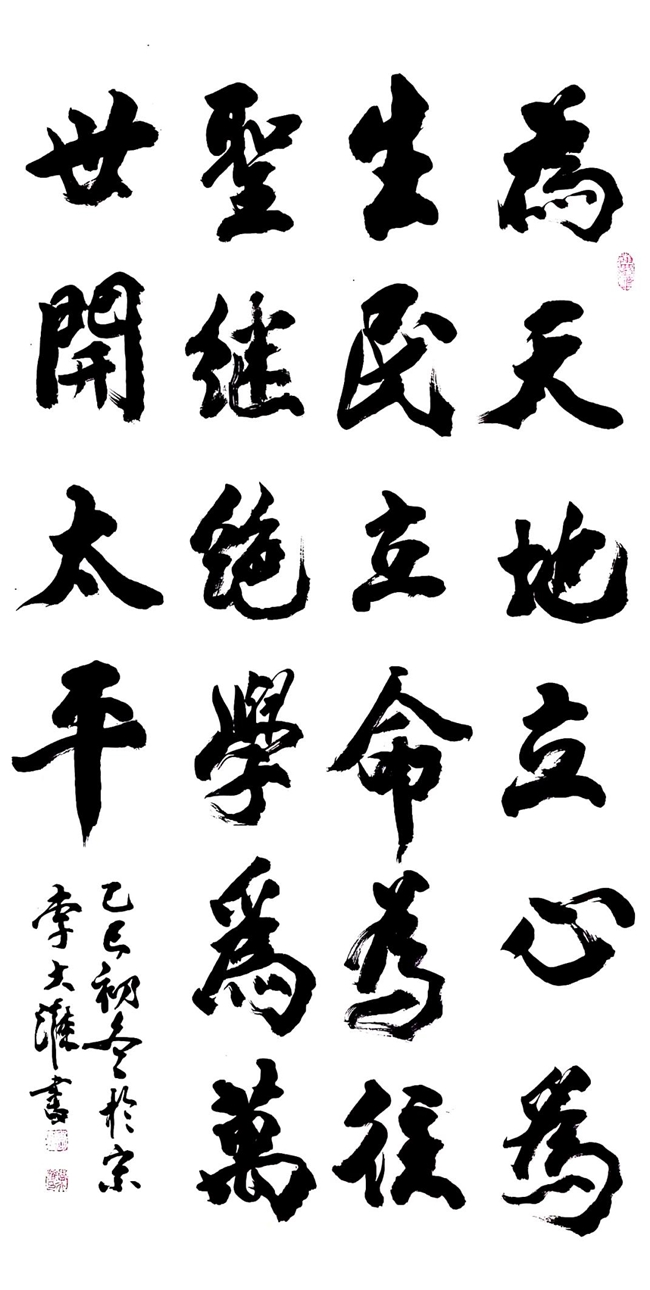 為天地立心為
生民立命為往
聖継絶學為萬
世開太平
己巳初冬於京
李大滙書